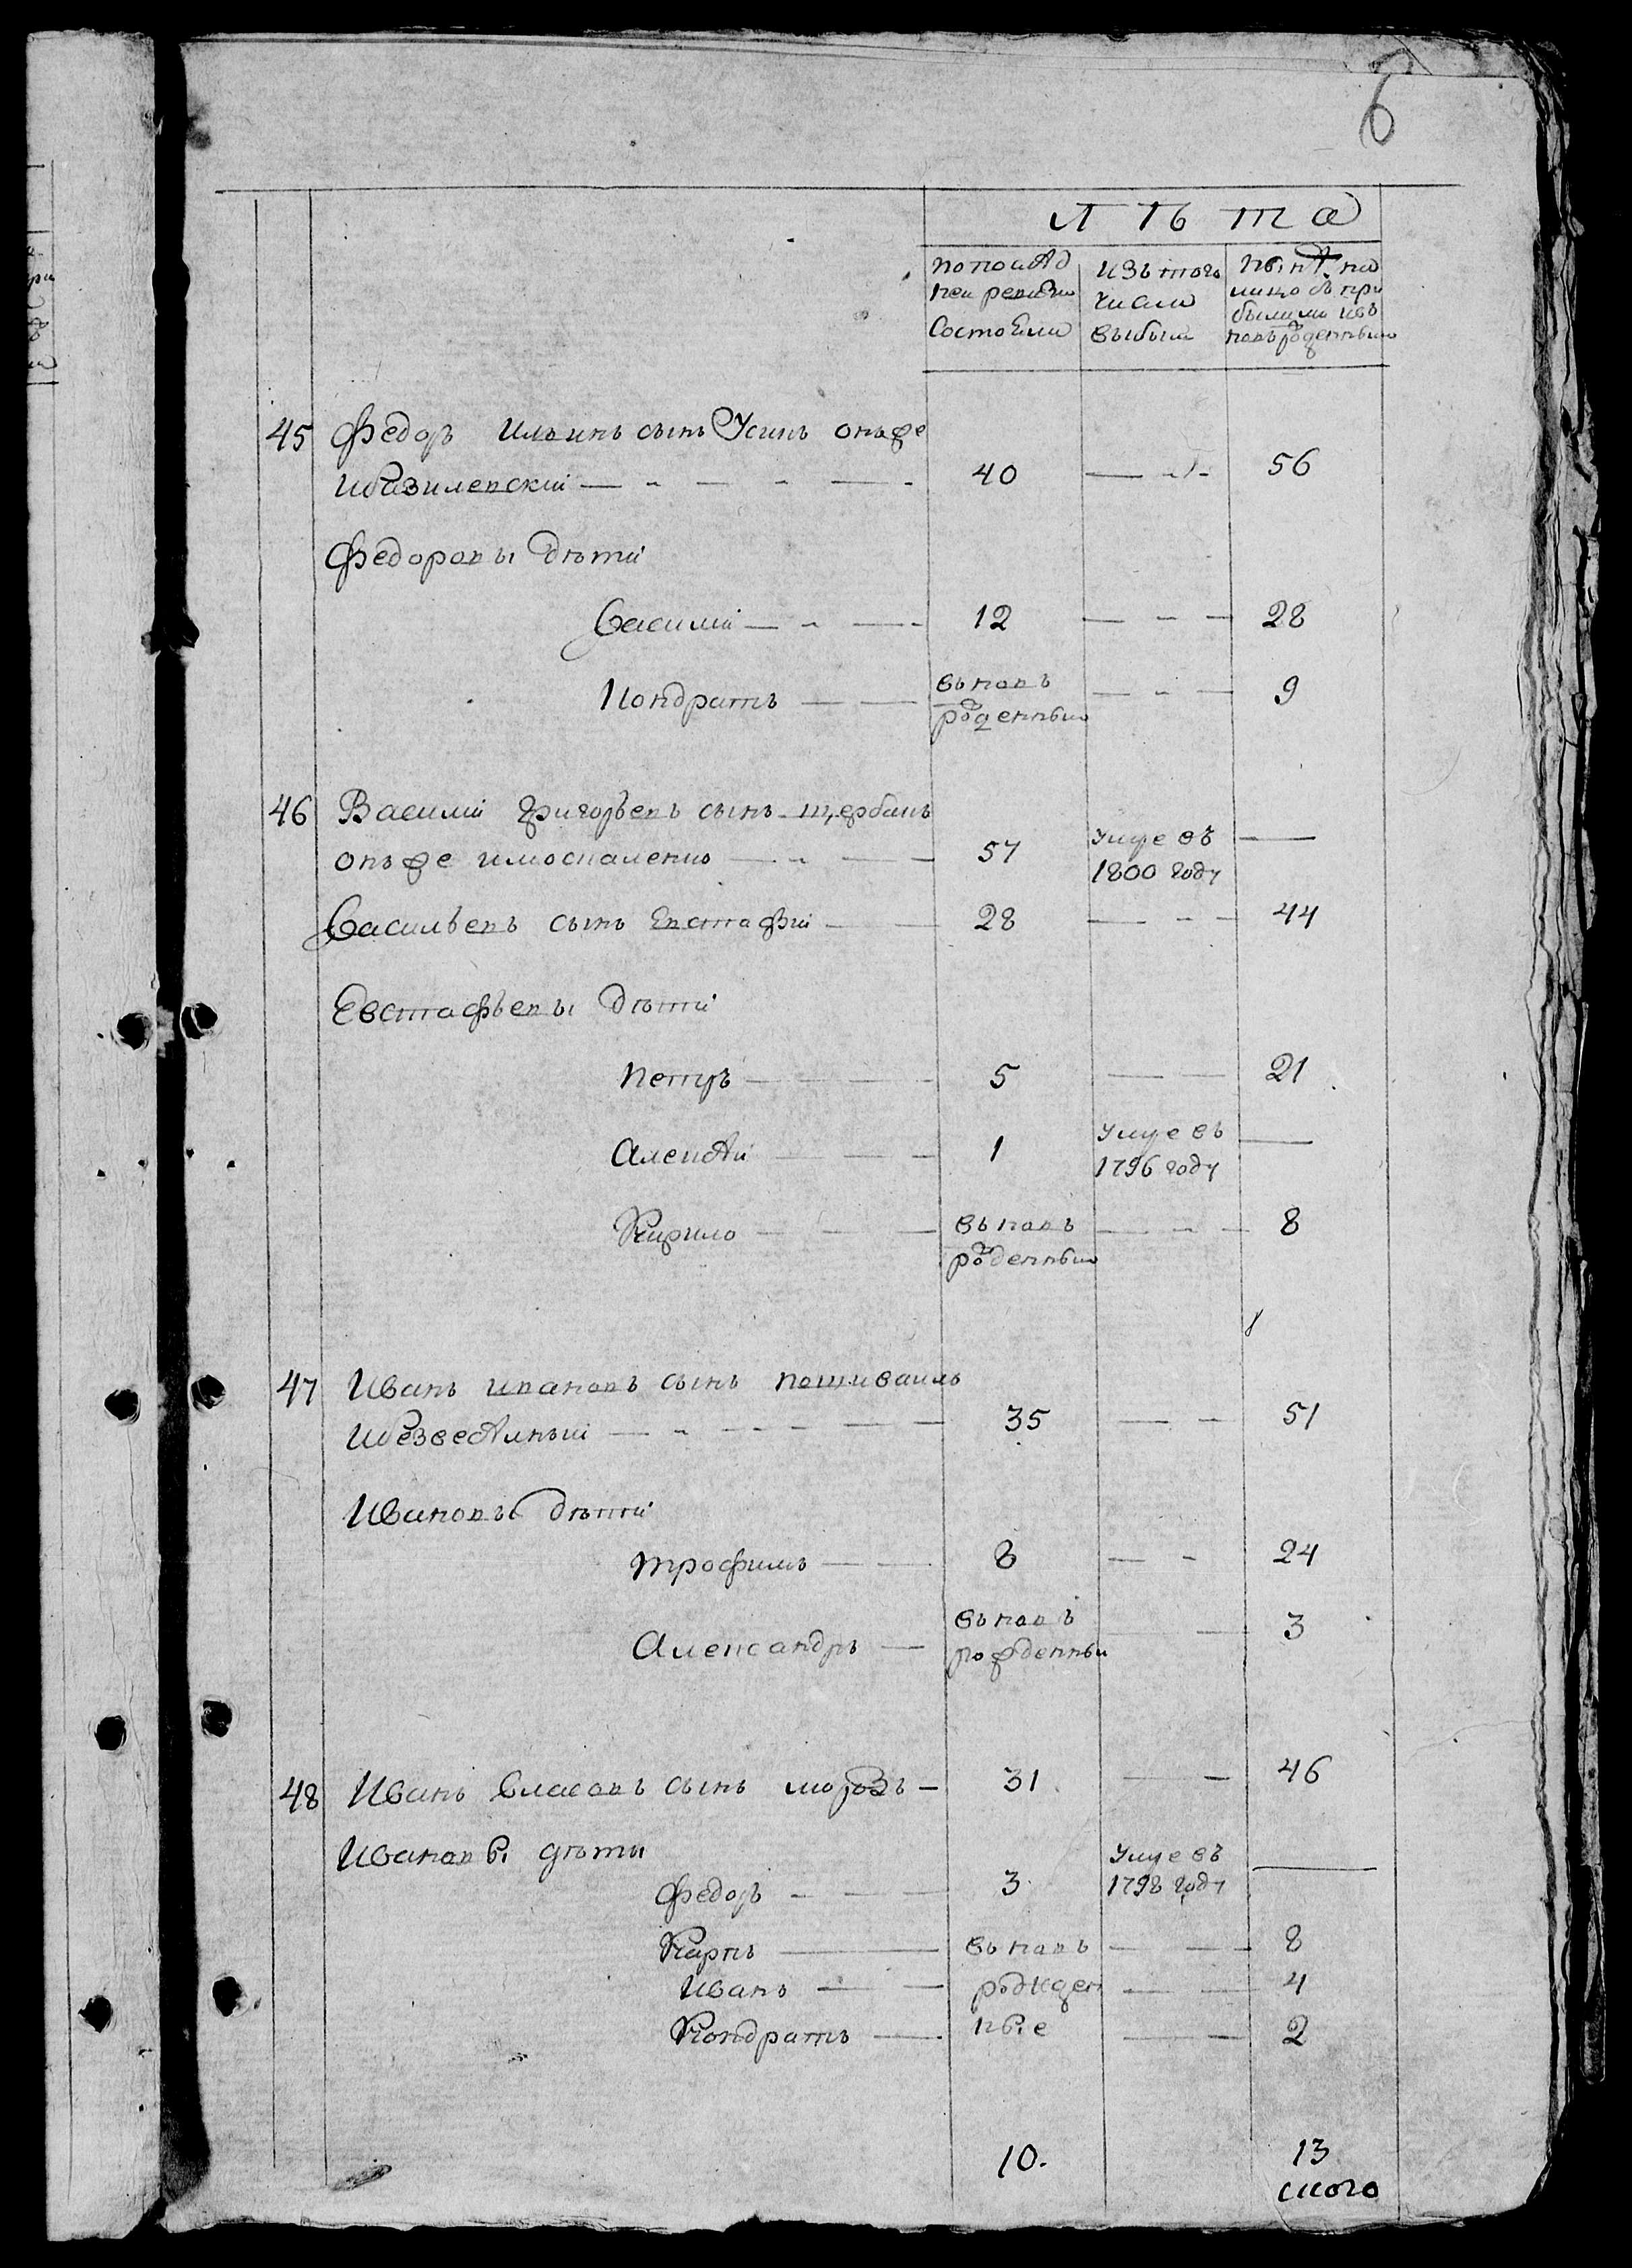 6
Лѣта
по послѣд
ней ревизіи
состояли
изъ того
числа
выбыли
нынѣ на
лицо съ при
былыми и въ
новъ рожденными
45 Федоръ Ильинъ сынъ Усикъ онъ же
и Базилевский 40 56
Федоровы дѣти
Василий 12 28
Кондратъ въ новъ рожденный 9
46 Василий Григорьевъ сынъ Щербакъ
онъ же 57 умре въ 1800 году
Васильевъ сынъ Евстафий 28 44
Евстафьевы дѣти
Петръ 5 21
Алексѣй 1 умре въ 1796 году
Кирило въ новъ рожденный 8
47 Иванъ Ивановъ сынъ Пошивайло
35 51
Ивановы дѣти
Трофимъ 8 24
Александръ въ новъ рожденный 3
48 Иванъ Власовъ сынъ Морозъ 31 46
Ивановы дѣти
Федоръ 3 умре въ 1798 году
Карпъ въ новъ 8
Иванъ рожден 4
Кондратъ ные 2
10. 13
итого